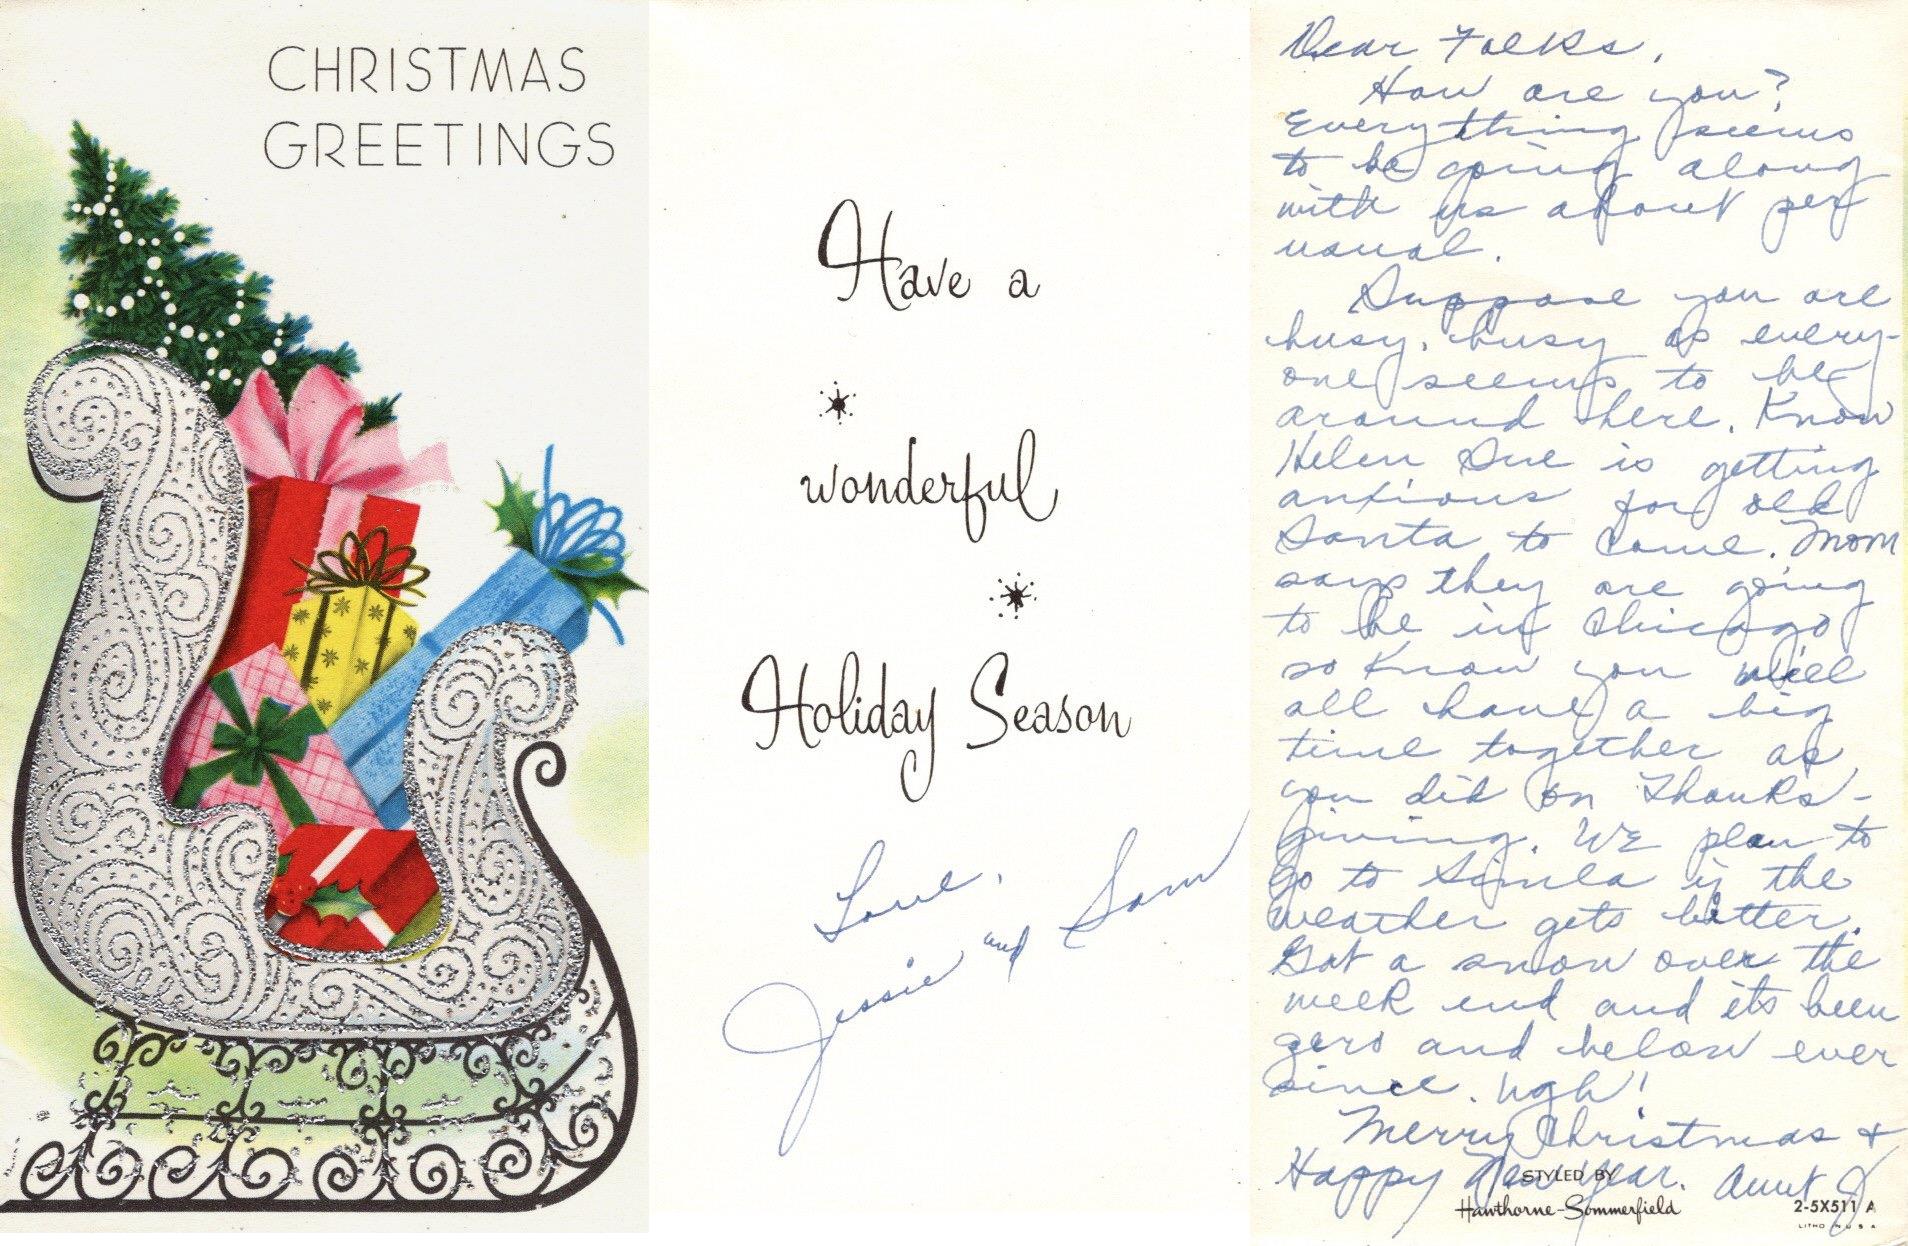 CHRISTMAS
GREETINGS
Have a
wonderful
Holiday Season
Love,
Jessie and Sam
Dear Folks,
How are you?
Everything seems
to be going along
with us about per
usual.
Suppose you are
busy, busy as every-
one seems to be
around here. Know
Helen Sue is getting
anxious for old
Santa to come. Mom
says they are going
to be in Chicago
so know you will
all have a big
time together as
you did on Thanks-
giving. We plan to
go to in the
weather gets better.
Got a snow over the
week end and its been
zero and below ever
since. Ugh!
Merry Christmas +
Happy New Year. Aunt J
STYLED BY
Hawthorne-Sommerfield
2-5X511 A
LITHO N U S A